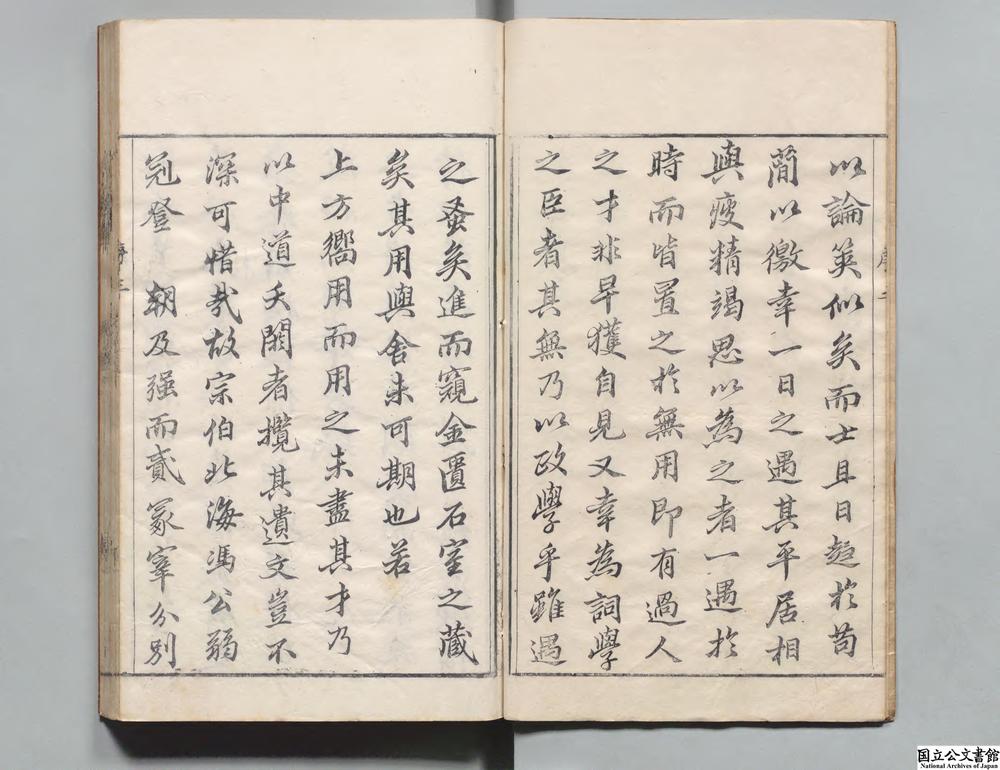 以論筴似矣而士且日趨於苟
簡以徼幸一日之遇其平居相
與疲精竭思以為之者一遇於
時而皆置之於無用即有過人
之才非早獲自見又幸為詞學
之臣者其無乃以政學乎雖遇
之蚤矣進而窺金匱石室之藏
矣其用與舍未可期也若
上方嚮用而用之未盡其才乃
以中道夭閼者攬其遺文豈不
深可惜哉故宗伯北海馮公弱
冠登 朝及强而貳冢宰分別
序二
序三
国立公文書館
National Archives of Japan